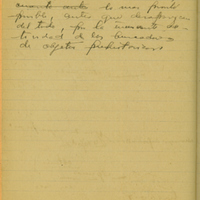 cuanto antes lo mas pronto
posible, antes que desaparezcan
del todo, por la creciente ac-
tividad de los buscadores
de objetos prehistóricos